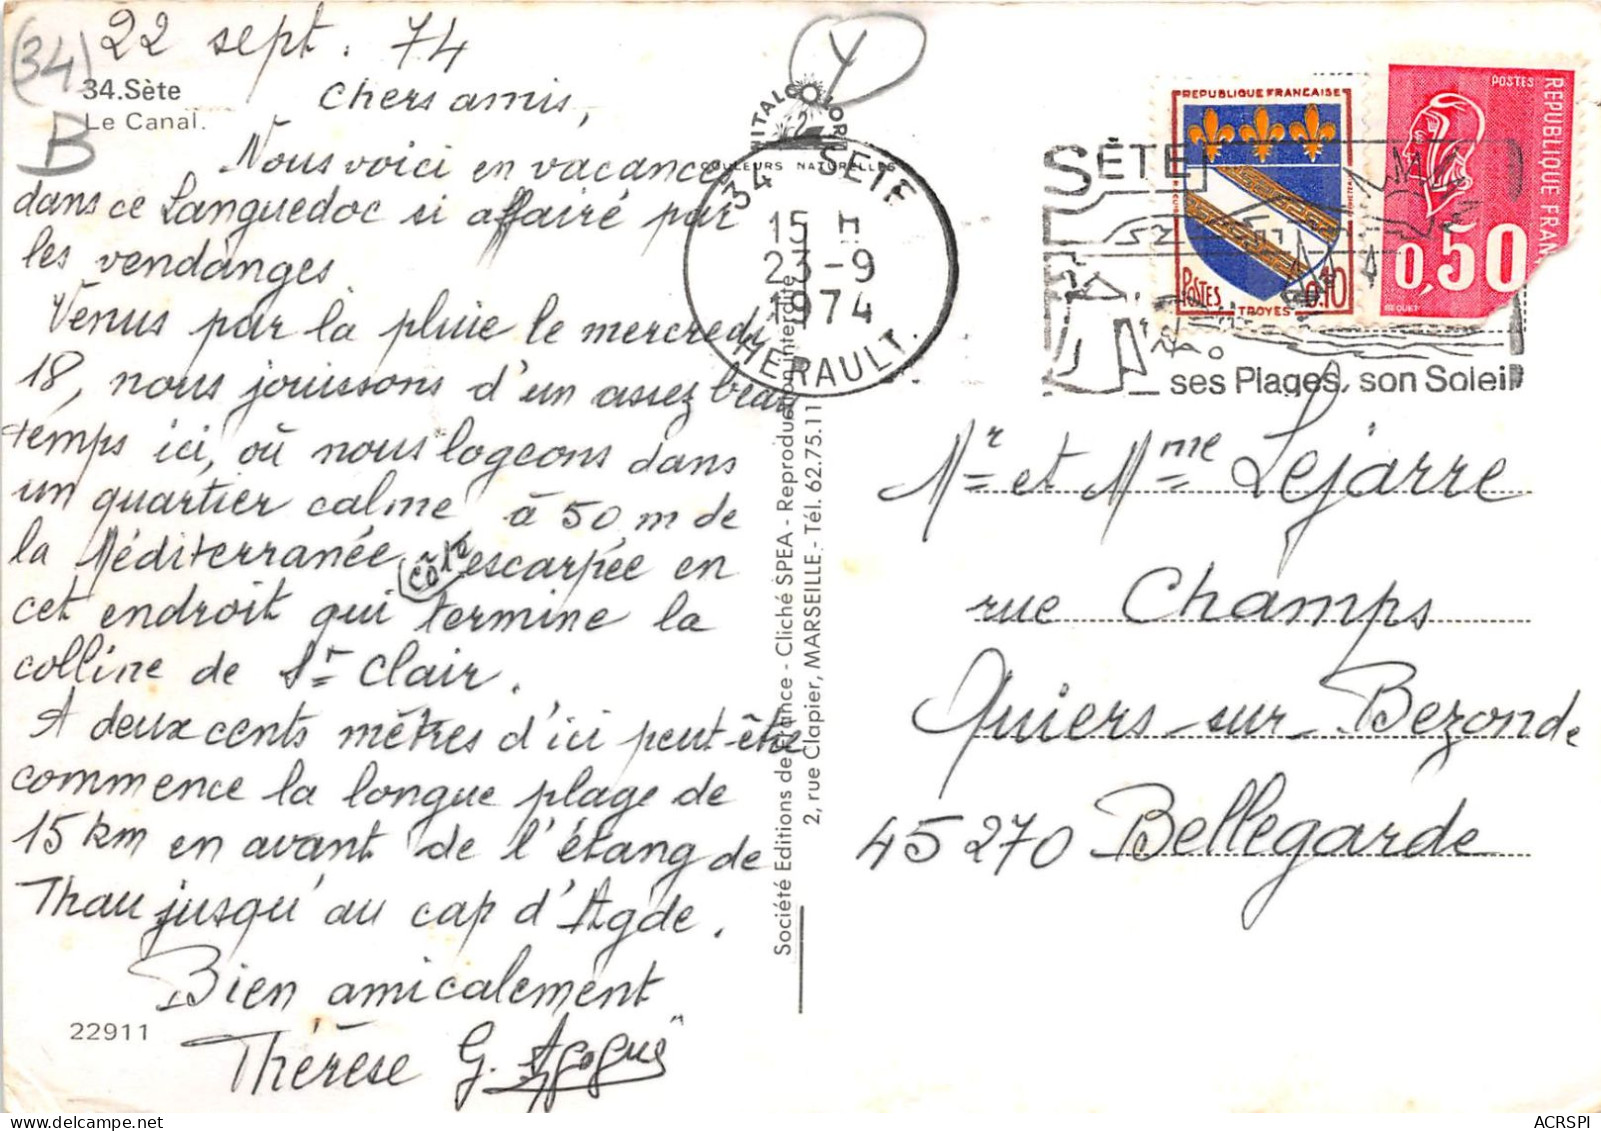 (34) 22 sept. 74
34.Sète
Le Canal.
B
Y
chers amis,
Nous voici en vacances
dans ce Languedoc si affairé par
les vendanges
Venus par la pluie le mercredi
18, nous jouissons d'un assez beau
temps ici, où nous logeons dans
un quartier calme à 50 m de
la Méditerranée (côte escarpée en
cet endroit qui termine la
colline de St Clair.
A deux cents mètres d'ici peut-être
commence la longue plage de
15 km en avant de l'étang de
Thau jusqu'au cap d'Agde.
Bien amicalement
Thérèse G.
22911
VITALCOLOR
COULEURS NATURELLES
34 SETE
15 H
23-9
1974
HERAULT.
Société Editions de France - Cliché SPEA - Reproduction interdite
2, rue Clapier, MARSEILLE - Tél. 62.75.11
REPUBLIQUE FRANÇAISE
POSTES 0.10
TROYES
POSTES
REPUBLIQUE FRAN
0,50
SÈTE
ses Plages, son Soleil
Mr et Mme Lejarre
rue Champs
Quiers-sur-Bezonde
45270 Bellegarde
ACRSPI